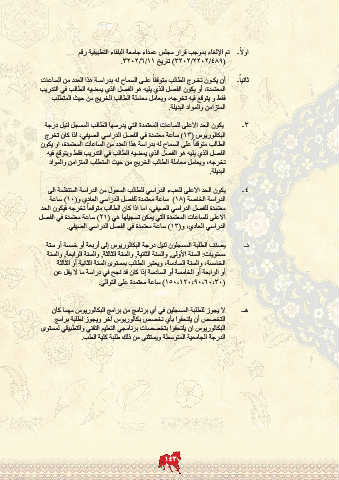 اولاً- تم الإلغاء بموجب قرار مجلس عمداء جامعة البلقاء التطبيقية رقم
(٣٢٠٢/٢٢٠٢/٤٨٩) تاريخ ٣٢٠٢/٦/١١.
ثانياً- أن يكون تخرج الطالب متوقفا على السماح له بدراسة هذا العدد من الساعات
المعتمدة، أو يكون الفصل الذي يليه هو الفصل الذي يمضيه الطالب في التدريب
فقط و يتوقع فيه تخرجه، ويعامل معاملة الطالب الخريج من حيث المتطلب
المتزامن والمواد البديلة.
٣- يكون الحد الأعلى للساعات المعتمدة التي يدرسها الطالب المسجل لنيل درجة
البكالوريوس (١٣) ساعة معتمدة في الفصل الدراسي الصيفي، اذا كان تخرج
الطالب متوقفاً على السماح له بدراسة هذا العدد من الساعات المعتمدة، او يكون
الفصل الذي يليه هو الفصل الذي يمضيه الطالب في التدريب فقط ويتوقع فيه
تخرجه، ويعامل معاملة الطالب الخريج من حيث المتطلب المتزامن والمواد
البديلة.
٤- يكون الحد الاعلى للعبء الدراسي للطالب المحول من الدراسة المنتظمة الى
الدراسة الخاصة (١٨) ساعة معتمدة للفصل الدراسي العادي و(١٠) ساعة
معتمدة للفصل الدراسي الصيفي، اما اذا كان الطالب متوقعاً تخرجه فيكون الحد
الاعلى للساعات المعتمدة التي يمكن تسجيلها هي (٢١) ساعة معتمدة في الفصل
الدراسي العادي، و(١٣) ساعة معتمدة في الفصل الدراسي الصيفي.
د- يصنف الطلبة المسجلون لنيل درجة البكالوريوس إلى أربعة أو خمسة أو ستة
مستويات: السنة الأولى، والسنة الثانية, والسنة الثالثة, والسنة الرابعة, والسنة
الخامسة، والسنة السادسة، ويعتبر الطالب بمستوى السنة الثانية أو الثالثة
أو الرابعة أو الخامسة أو السادسة إذا كان قد نجح في دراسة ما لا يقل عن
(٣٠،٦٠،٩٠،١٢٠،١٥٠) ساعة معتمدة على التوالي.
هـ- لا يجوز للطلبة المسجلين في أي برنامج من برامج البكالوريوس مهما كان
التخصص أن يلتحقوا بأي تخصص بكالوريوس آخر ويجوز لطلبة برامج
البكالوريوس ان يلتحقوا بتخصصات برنامجي التعليم التقني والتطبيقي لمستوى
الدرجة الجامعية المتوسطة ويستثنى من ذلك طلبة كلية الطب.